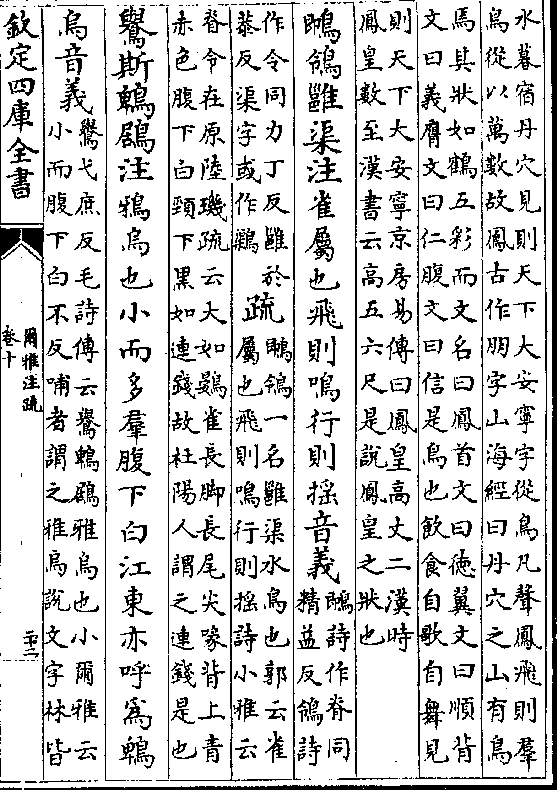 水暮宿丹穴見則天下大安寧字從鳥凡聲鳳飛則羣
鳥從以萬數故鳳古作朋字山海經曰丹穴之山有鳥
焉其狀如鶴五彩而文名曰鳳首文曰徳翼文曰順背
文曰義膺文曰仁腹文曰信是鳥也飲食自歌自舞見
則天下大安寧京房易傳曰鳳皇髙丈二漢時
鳳皇數至漢書云高五六尺是說鳳皇之狀也
鶺鴒雝渠注雀屬也飛則鳴行則揺音義
鶺詩作脊同
精益反鴒詩
作令同力丁反雝於
恭反渠字或作鸔
疏
鶺鴒一名雝渠水鳥也郭云雀
屬也飛則鳴行則揺詩小雅云
脊令在原陸璣疏云大如鷃雀長脚長尾尖喙背上青
赤色腹下白頸下黒如連錢故杜陽人謂之連錢是也
鸒斯鵯鶋注鴉烏也小而多羣腹下白江東亦呼爲鵯
烏音義
鸒弋庶反毛詩傳云鸒鵯鶋雅烏也小爾雅云
小而腹下白不反哺者謂之雅烏說文字林皆
欽定四庫全書
爾雅注疏
卷十
二十二